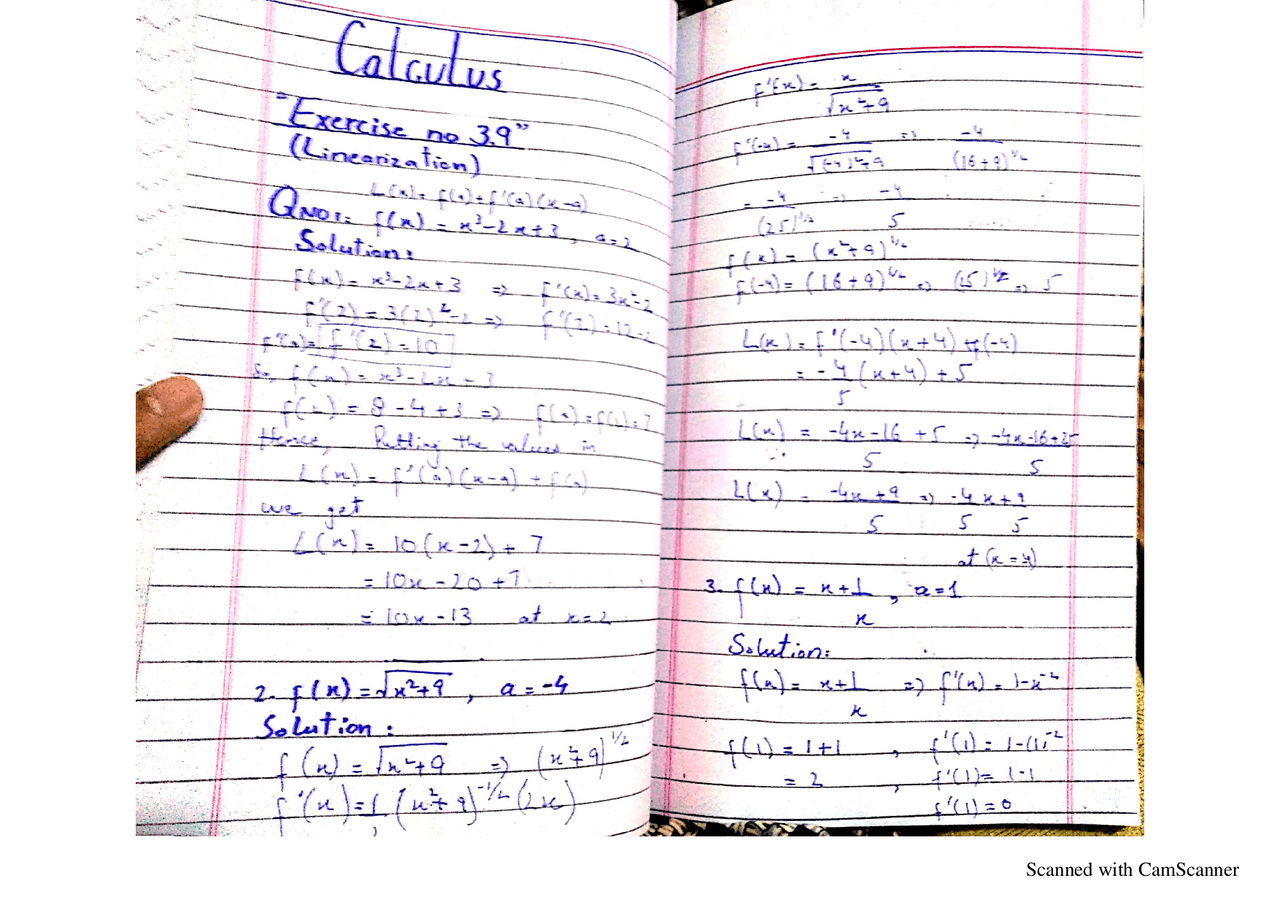 Calculus
"Exercise no 3.9"
(Linearization)
L(x) = f(a) + f'(a)(x-a)
QNO1:- f(x) = x³-2x+3 , a=2
Solution:
f(x) = x³-2x+3 => f'(x) = 3x²-2
f'(2) = 3(2)²-2 => f'(2) = 12-2
f'(a) = f'(2) = 10
So, f(x) = x³-2x+3
f(2) = 8-4+3 => f(a) = f(2) = 7
Hence, Putting the values in
L(x) = f'(a)(x-a) + f(a)
we get
L(x) = 10(x-2) + 7
= 10x-20+7
= 10x-13 at x=2
2. f(x) = √x²+9 , a = -4
Solution:
f(x) = √x²+9 => (x²+9)^1/2
f'(x) = 1 (x²+9)^-1/2 (2x)
f'(x) = x/√x²+9
f'(-4) = -4/√(-4)²+9 => -4/(16+9)^1/2
= -4/(25)^1/2 => -4/5
f(x) = (x²+9)^1/2
f(-4) = (16+9)^1/2 => (25)^1/2 => 5
L(x) = f'(-4)(x+4) + f(-4)
= -4/5 (x+4) + 5
L(x) = -4x-16/5 + 5 => -4x-16+25/5
L(x) = -4x+9/5 => -4x/5 + 9/5
at (x=4)
3. f(x) = x+1/x , a=1
Solution:
f(x) = x+1/x => f'(x) = 1-x^-2
f(1) = 1+1 , f'(1) = 1-(1)^-2
= 2 , f'(1) = 1-1
f'(1) = 0
Scanned with CamScanner